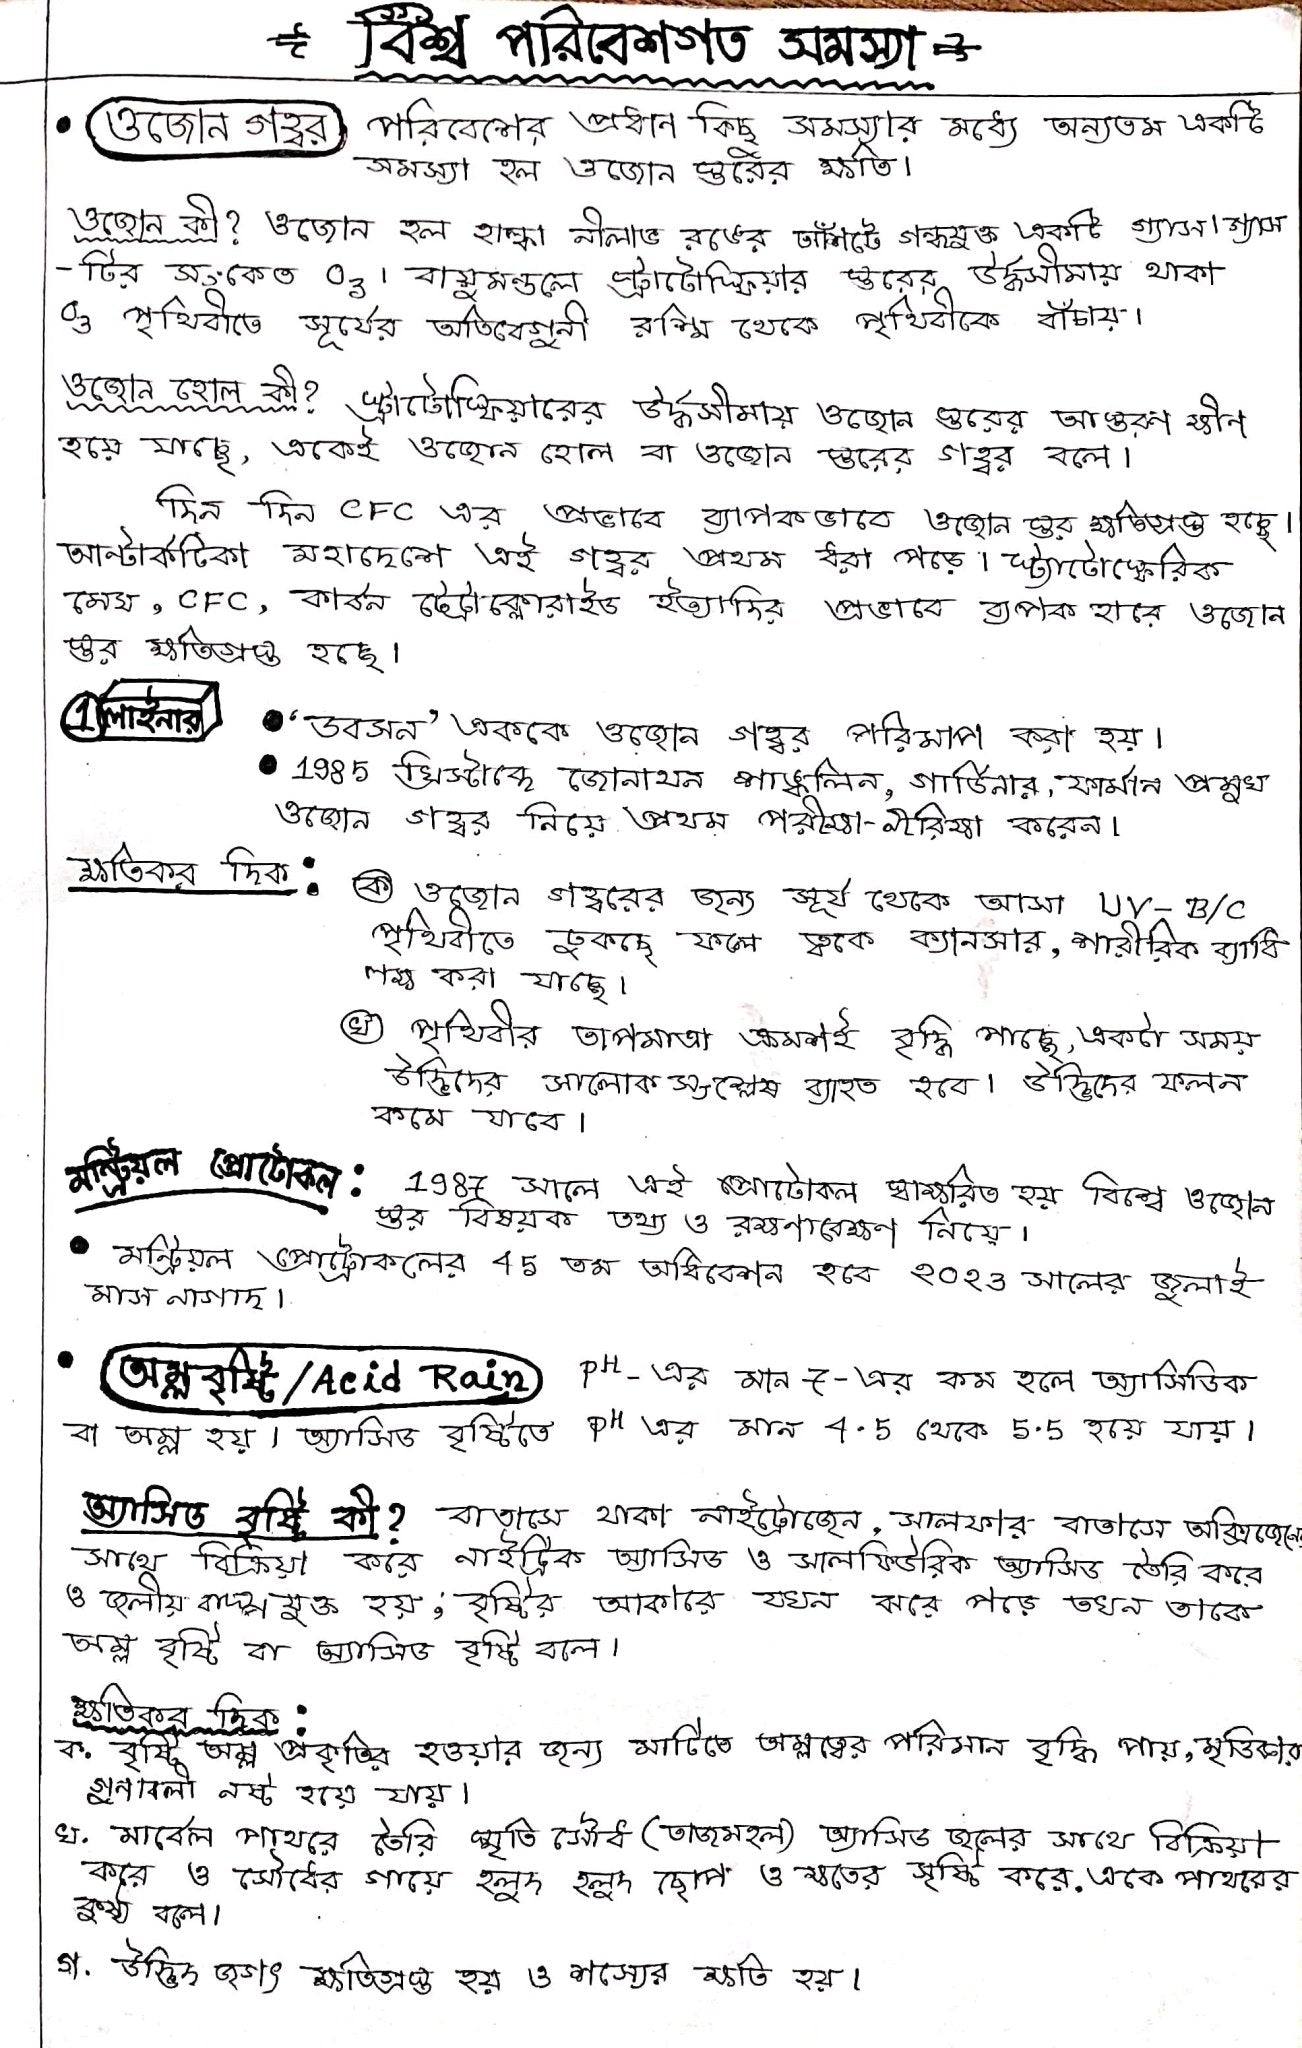 বিশ্ব পরিবেশগত সমস্যা
• ওজোন গহ্বর পরিবেশের প্রধান কিছু সমস্যার মধ্যে অন্যতম একটি
সমস্যা হল ওজোন স্তরের ক্ষতি।
ওজোন কী? ওজোন হল হাল্কা নীলাভ রঙের আঁশটে গন্ধযুক্ত একটি গ্যাস। গ্যাস
-টির সংকেত O₃। বায়ুমন্ডলে স্ট্রাটোস্ফিয়ার স্তরের উর্দ্ধসীমায় থাকা
O₃ পৃথিবীতে সূর্যের অতিবেগুনী রশ্মি থেকে পৃথিবীকে বাঁচায়।
ওজোন হোল কী? স্ট্রাটোস্ফিয়ারের উর্দ্ধসীমায় ওজোন স্তরের আস্তরণ ক্ষীণ
হয়ে যাচ্ছে, একেই ওজোন হোল বা ওজোন স্তরের গহ্বর বলে।
দিন দিন CFC এর প্রভাবে ব্যাপকভাবে ওজোন স্তর ক্ষতিগ্রস্ত হচ্ছে।
আন্টার্কটিকা মহাদেশে এই গহ্বর প্রথম ধরা পড়ে। স্ট্যাটোস্ফেরিক
মেঘ, CFC, কার্বন টেট্রাক্লোরাইড ইত্যাদির প্রভাবে ব্যপক হারে ওজোন
স্তর ক্ষতিগ্রস্ত হচ্ছে।
1 লাইনার • 'ডবসন' এককে ওজোন গহ্বর পরিমাপ করা হয়।
• 1985 খ্রিস্টাব্দে জোনাথন শাঙ্কলিন, গার্ডিনার, ফার্মান প্রমুখ
ওজোন গহ্বর নিয়ে প্রথম পরীক্ষা-নীরিক্ষা করেন।
ক্ষতিকর দিক: ক ওজোন গহ্বরের জন্য সূর্য থেকে আসা UV-B/C
পৃথিবীতে ঢুকছে ফলে ত্বকে ক্যানসার, শারীরিক ব্যাধি
লক্ষ করা যাচ্ছে।
খ পৃথিবীর তাপমাত্রা ক্রমশই বৃদ্ধি পাচ্ছে, একটা সময়
উদ্ভিদের সালোক সংশ্লেষ ব্যাহত হবে। উদ্ভিদের ফলন
কমে যাবে।
মন্ট্রিয়ল প্রোটোকল: 1987 সালে এই প্রোটোকল স্বাক্ষরিত হয় বিশ্বে ওজোন
স্তর বিষয়ক তথ্য ও রক্ষণাবেক্ষণ নিয়ে।
• মন্ট্রিয়ল প্রোট্রোকলের 45 তম অধিবেশন হবে ২০২৩ সালের জুলাই
মাস নাগাদ।
• অম্লবৃষ্টি/Acid Rain pH-এর মান ৭-এর কম হলে অ্যাসিডিক
বা অম্ল হয়। অ্যাসিড বৃষ্টিতে pH এর মান 4.5 থেকে 5.5 হয়ে যায়।
অ্যাসিড বৃষ্টি কী? বাতাসে থাকা নাইট্রোজেন, সালফার বাতাসে অক্সিজেনের
সাথে বিক্রিয়া করে নাইট্রিক অ্যাসিড ও সালফিউরিক অ্যাসিড তৈরি করে
ও জলীয় বাষ্প যুক্ত হয়; বৃষ্টির আকারে যখন ঝরে পড়ে তখন তাকে
অম্ল বৃষ্টি বা অ্যাসিড বৃষ্টি বলে।
ক্ষতিকর দিক:
ক. বৃষ্টি অম্ল প্রকৃতির হওয়ার জন্য মাটিতে অম্লত্বের পরিমান বৃদ্ধি পায়, মৃত্তিকার
গুনাবলী নষ্ট হয়ে যায়।
খ. মার্বেল পাথরে তৈরি স্মৃতি সৌধ (তাজমহল) অ্যাসিড জলের সাথে বিক্রিয়া
করে ও সৌধের গায়ে হলুদ হলুদ ছোপ ও ক্ষতের সৃষ্টি করে. একে পাথরের
কুষ্ঠ বলে।
গ. উদ্ভিদ জগৎ ক্ষতিগ্রস্ত হয় ও শস্যের ক্ষতি হয়।